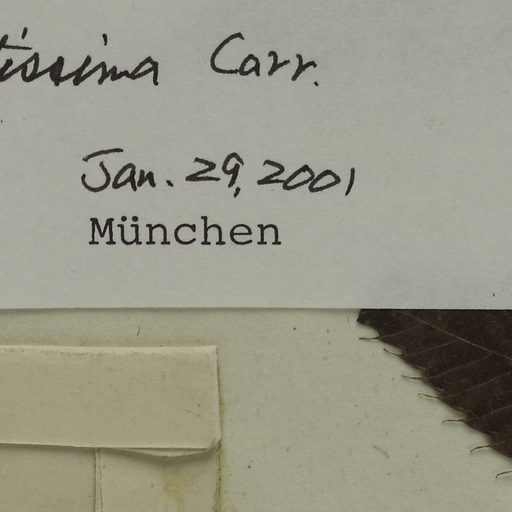 tissima Carr.
Jan. 29, 2001
München